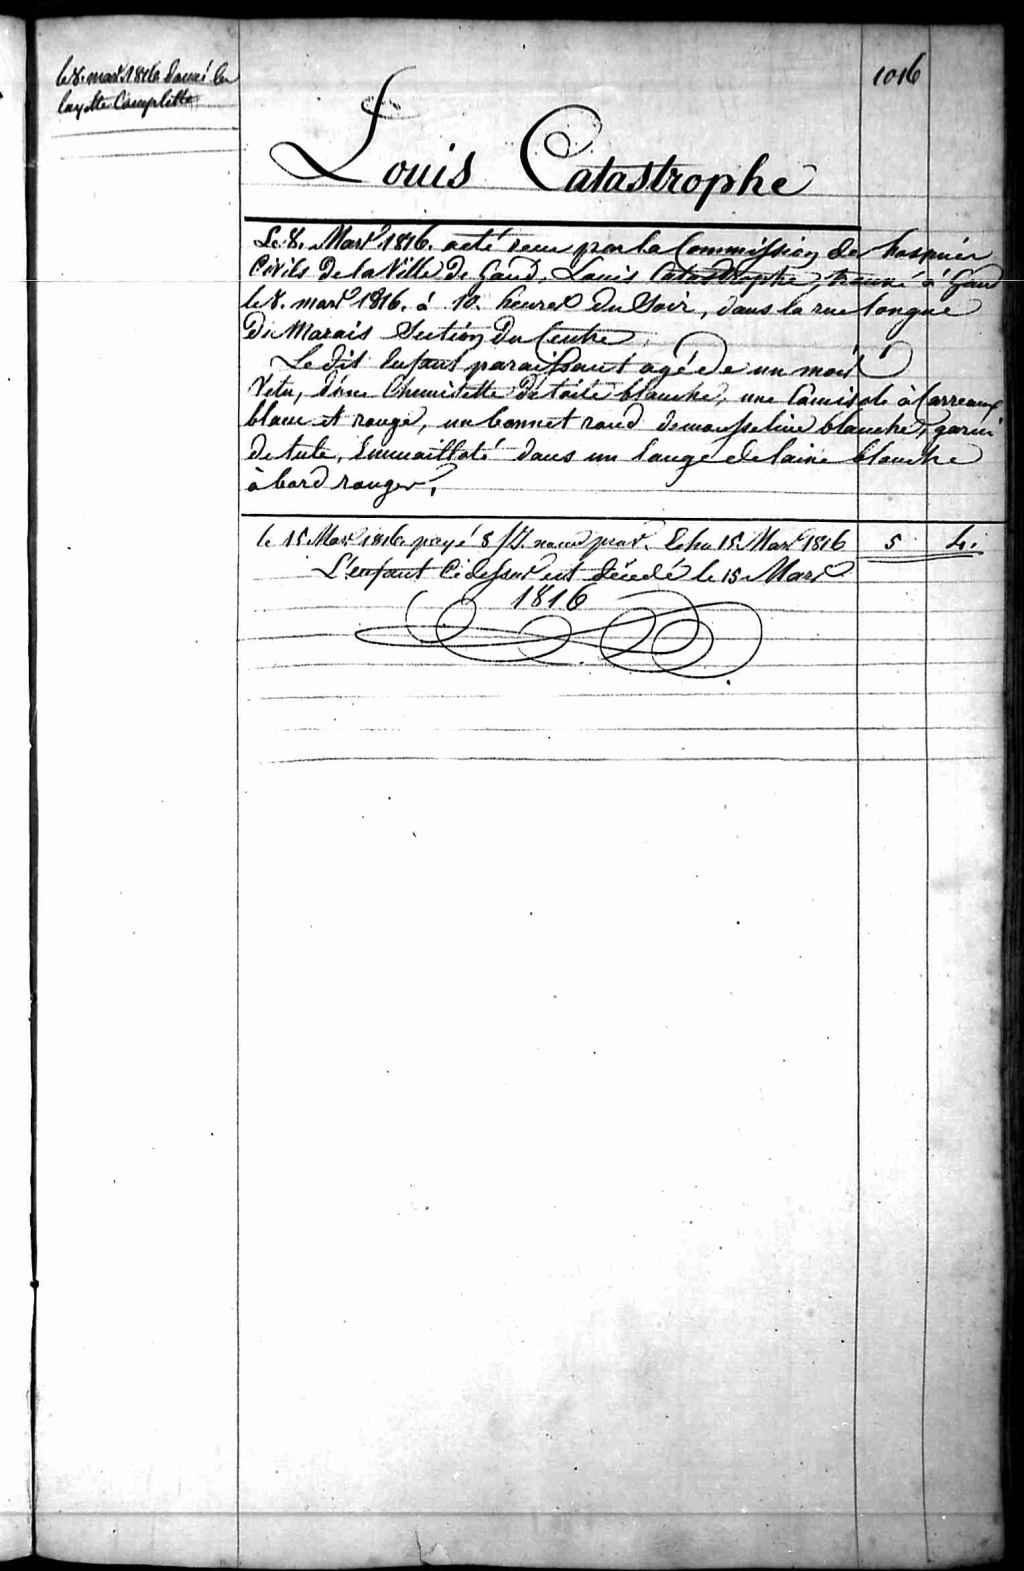 le 8. mars 1816 donné la
layette Complette
1016
Louis Catastrophe
Le 8. Mars 1816. a été recu par la Commission des hospices
Civils de la Ville de Gand, Louis Catastrophe, trouvé à Gand
le 8. mars 1816. à 10. heures du Soir, dans la rue longue
du Marais Section du Centre.
Le dit Enfant paraissant agé de un mois
Vetu, d'une Chemisette de toile blanche, une Camisole à Carreaux
blanc et rouge, un bonnet rond de mousseline blanche, garni
de tule, Emmailloté dans un lange de laine blanche
à bord rouges.
le 15 Mars 1816 payé 8 Echu 15 Mars 1816 5 4.
L'enfant Cidessus est décédé le 15 Mars
1816